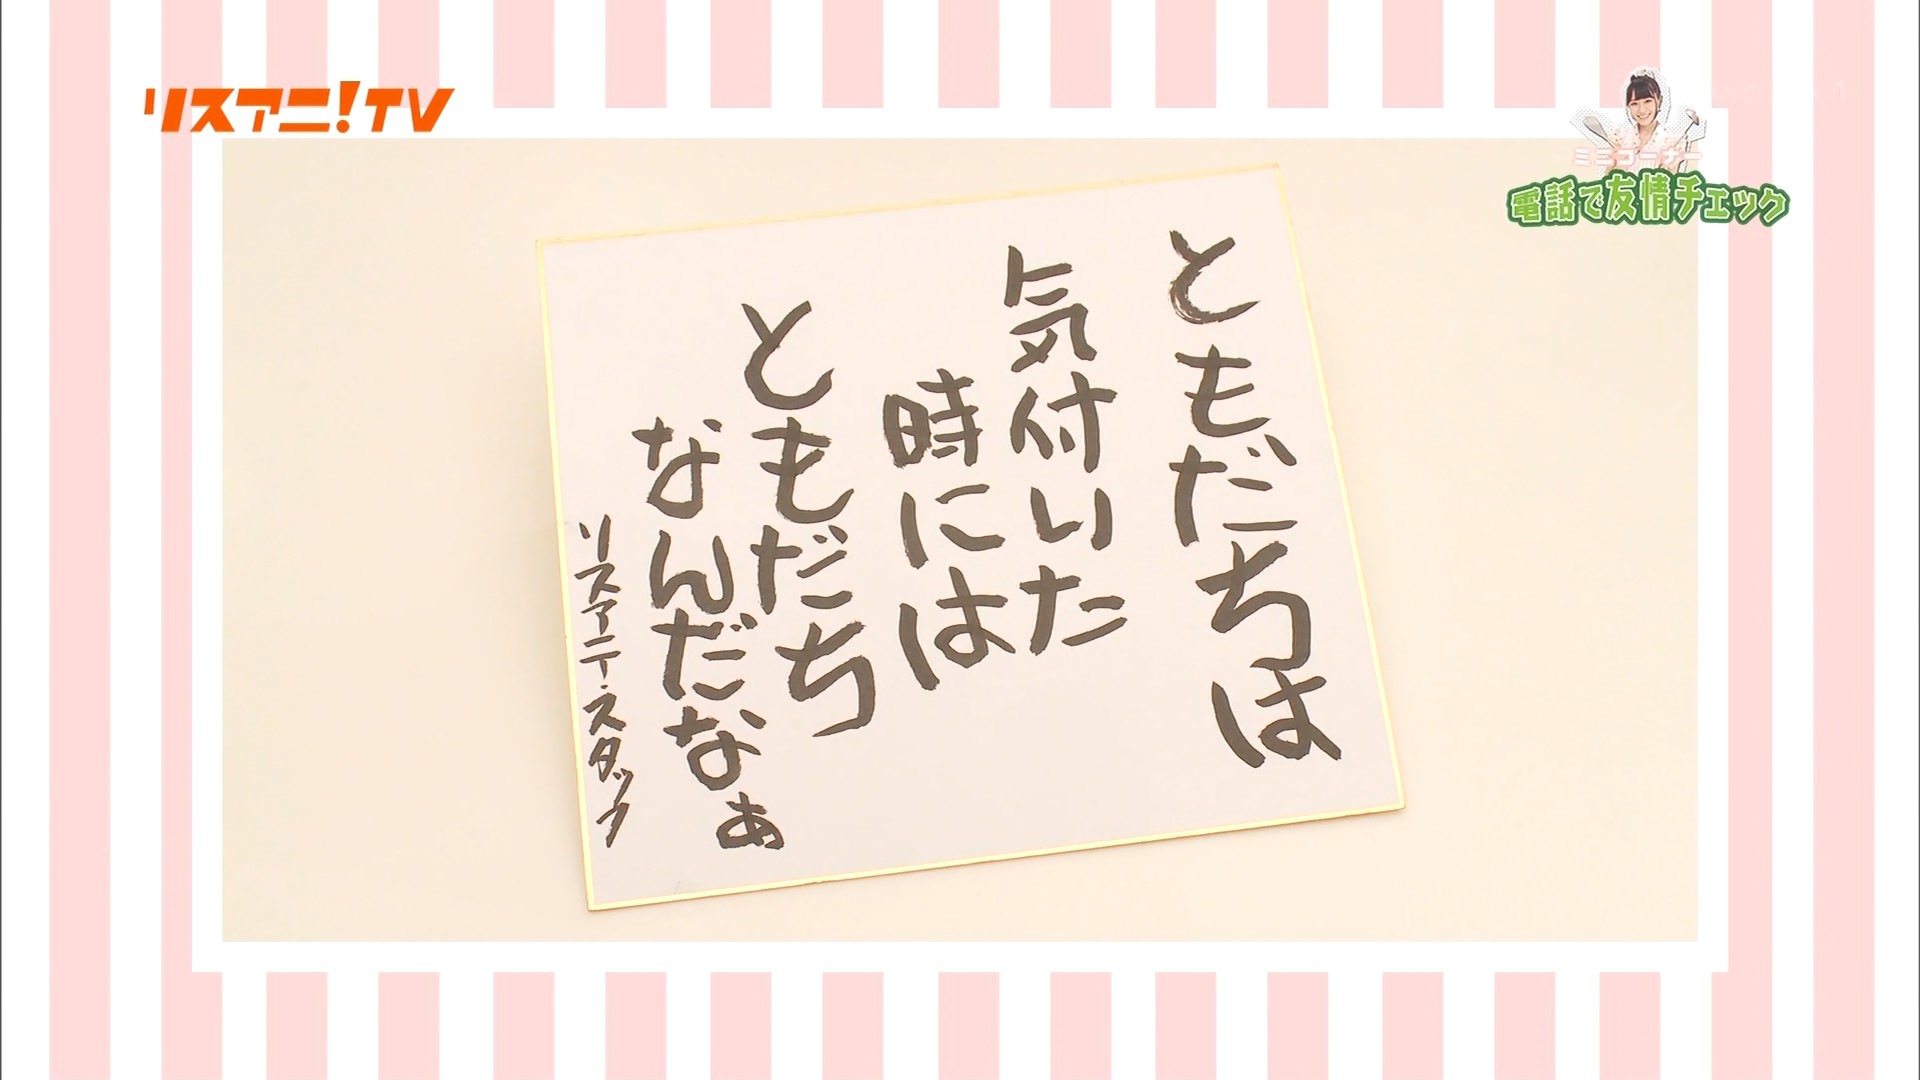 リスアニ!TV
ミニコーナー
電話で友情チェック
ともだちは
気付いた
時には
ともだち
なんだなぁ
リスアニ・スタッフ